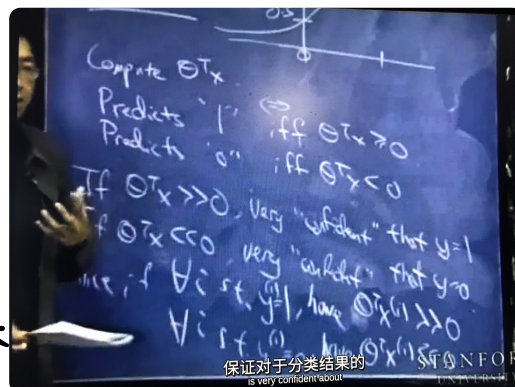 0.5
Compute ΘᵀX
Predicts "1" ⇔ iff ΘᵀX ≥ 0
Predicts "0" iff ΘᵀX < 0
If ΘᵀX >> 0, very "confident" that y=1
If ΘᵀX << 0 very "confident" that y=0
if ∀i s.t. y⁽ⁱ⁾=1, have ΘᵀX⁽ⁱ⁾ >> 0
∀i s.t. have ΘᵀX⁽ⁱ⁾
保证对于分类结果的
is very confident about
STANFOR
UNIVERSITY